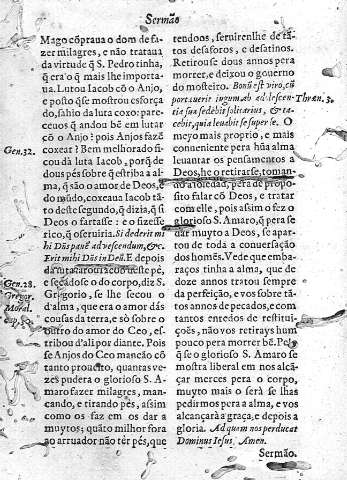 Sermão
Mago cõpraua o dom de fa-
zer milagres, e não trataua
da virtude q̃ S. Pedro tinha,
q̃ era o q̃ mais lhe importa-
ua. Lutou Iacob cõ o Anjo,
e posto q̃ mostrou esforça
do, sahio da luta coxo: pare-
ceuos q̃ andou bẽ em lutar
cõ o Anjo? pois Anjos fazẽ
coxear? Bem melhorado fi-
Gen. 32.
cou dà luta Iacob, porq̃ de-
dous pés sobre q̃ estriba a al-
ma, q̃ são o amor de Deos, e
do mũdo, coxeaua Iacob tã-
to deste segundo, q̃ dizia, q̃ si
Deos o fartasse: & o fizesse
rico, q̃ o seruiria. Si dederit mi
hi Dñs panẽ ad vescendum, &c.
Erit mihi Dñs in Deũ. E depois
da luta farou Iacob deste pé,
Gen. 28.
e secãdose o do corpo, diz S.
Gregor.
Gregorio, se lhe secou o
Moral.
d'alma, que era o amor dàs
cousas da terra, e só sobre o
outro do amor do Ceo, es-
tribou d'ali por diante. Pois
se Anjos do Ceo mancão cõ
tanto proueito, quantas ve-
zes pudera o glorioso S. A-
maro fazer milagres, man-
cando, e tirando pés, assim
como os faz em os dar a
muytos; quãto milhor fora
ao arruador não ter pés, que
tendoos, seruirenlhe de tã-
tos desaforos, e desatinos.
Retirouse dous annos pera
morrer, e deixou o gouerno
do mosteiro. Bonũ est viro, cũ
portauerit iugum, ab adolescen-
Thren. 3.
tia sua sedebit solitarius, & ta-
cebit, quia leuabit se super se. O
meyo mais proprio, e mais
conueniente pera hũa alma
leuantar os pensamentos a
Deos, he o retirarse, toman-
do a soledad, pera de propo-
sito falar cõ Deos, e tratar
com elle, pois assim o fez o
glorioso S. Amaro, q̃ pera se
dar muyto a Deos, se apar-
tou de toda a conuersação
dos homẽs. Vede que emba-
raços tinha a alma, que de
doze annos tratou sempre
da perfeição, e vos sobre tã-
tos annos de pecados, e com
tantos enredos de restitui-
ções, não vos retirays hum
pouco pera morrer bẽ. Pelo
q̃ se o glorioso S. Amaro se
mostra liberal em nos alcã-
çar merces pera o corpo,
muyto mais o será se lhas
pedirmos pera a alma, e vos
alcançarà a graça, e depois a
gloria. Ad quam nos perducat
Dominus Iesus. Amen.
Sermão.